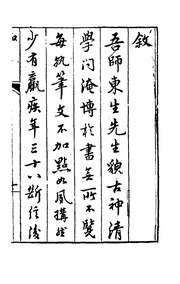 敘
吾師東生先生貌古神清
學問淹博於書無所不覽
每執筆文不加點如風搆然
少有羸疾年三十八斷經後